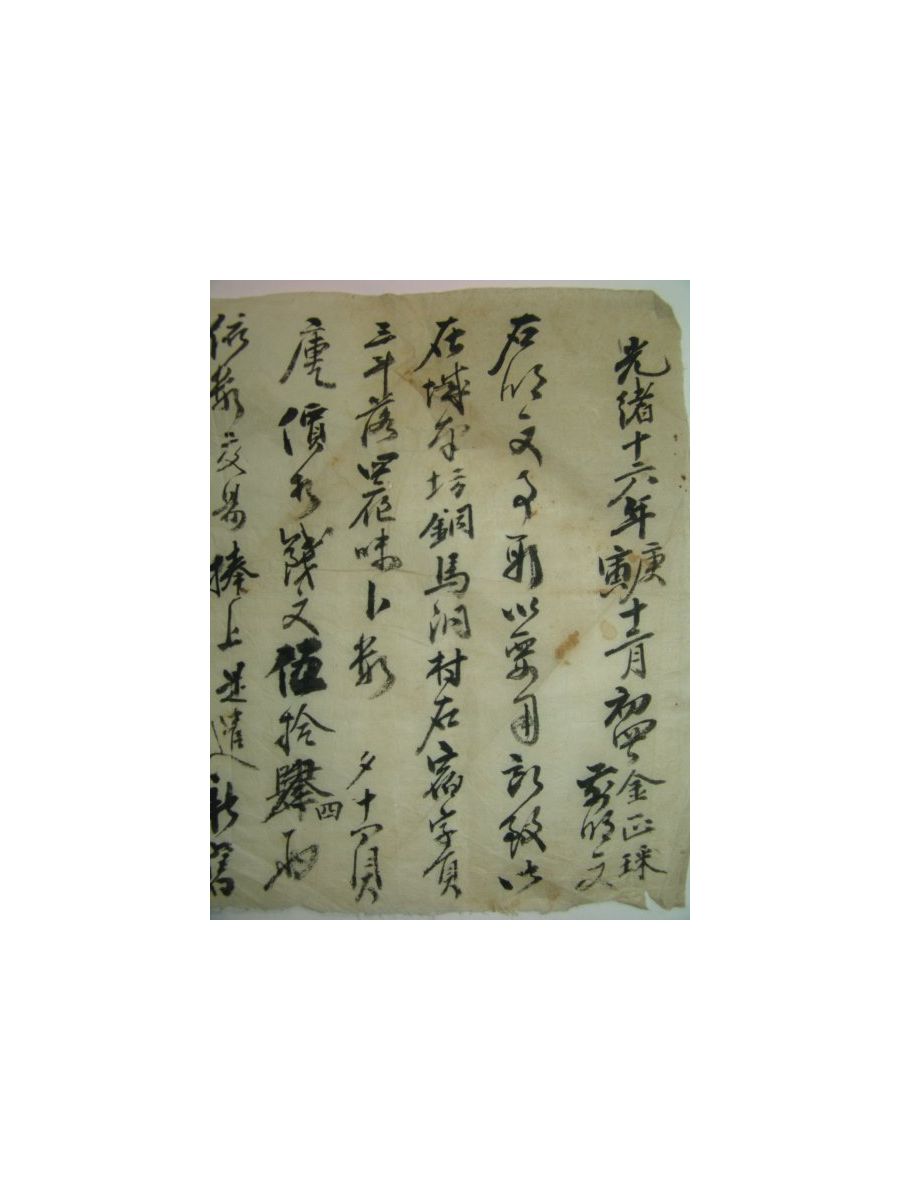 光緖十六年庚寅十二月初四日金正珠前明文
右明文事段以要用所致以
在城內坊銅馬洞村右宿字員
三斗落四夜味卜數夕十四負
㐣價折錢文伍拾肆四兩
依數交易捧上是遣新舊